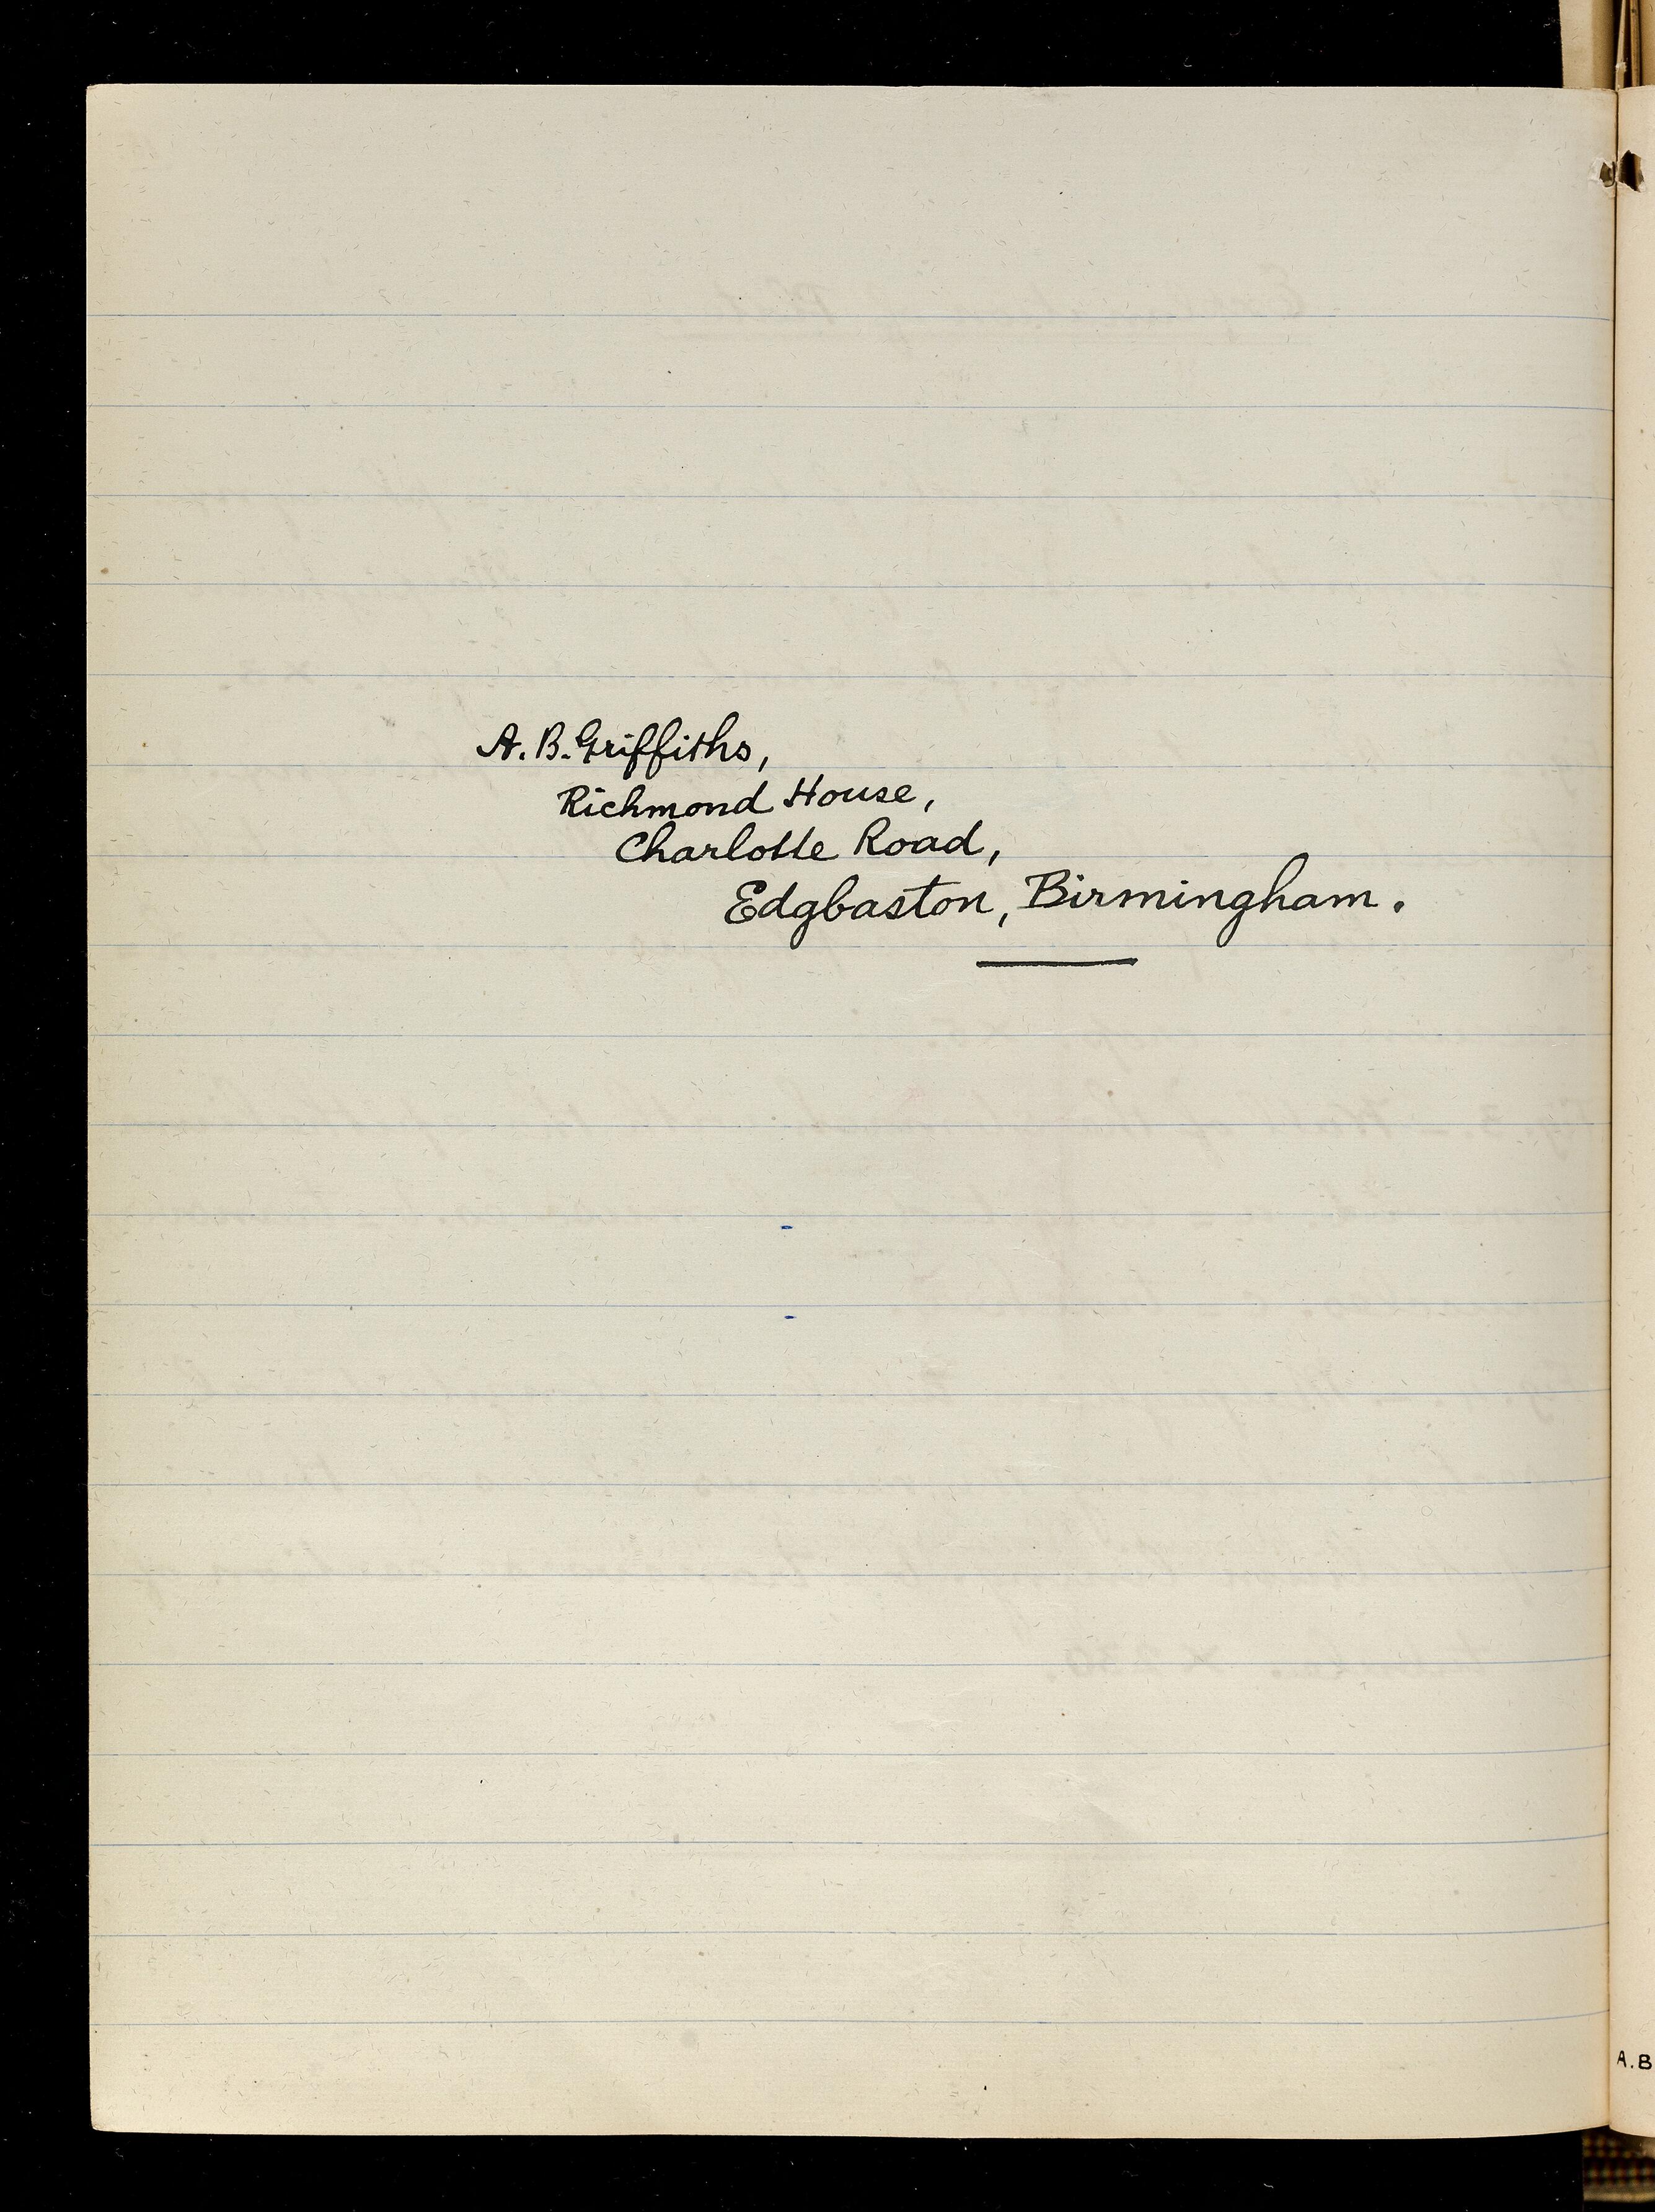 A. B. Griffiths,
Richmond House,
Charlotte Road,
Edgbaston, Birmingham.
A.B